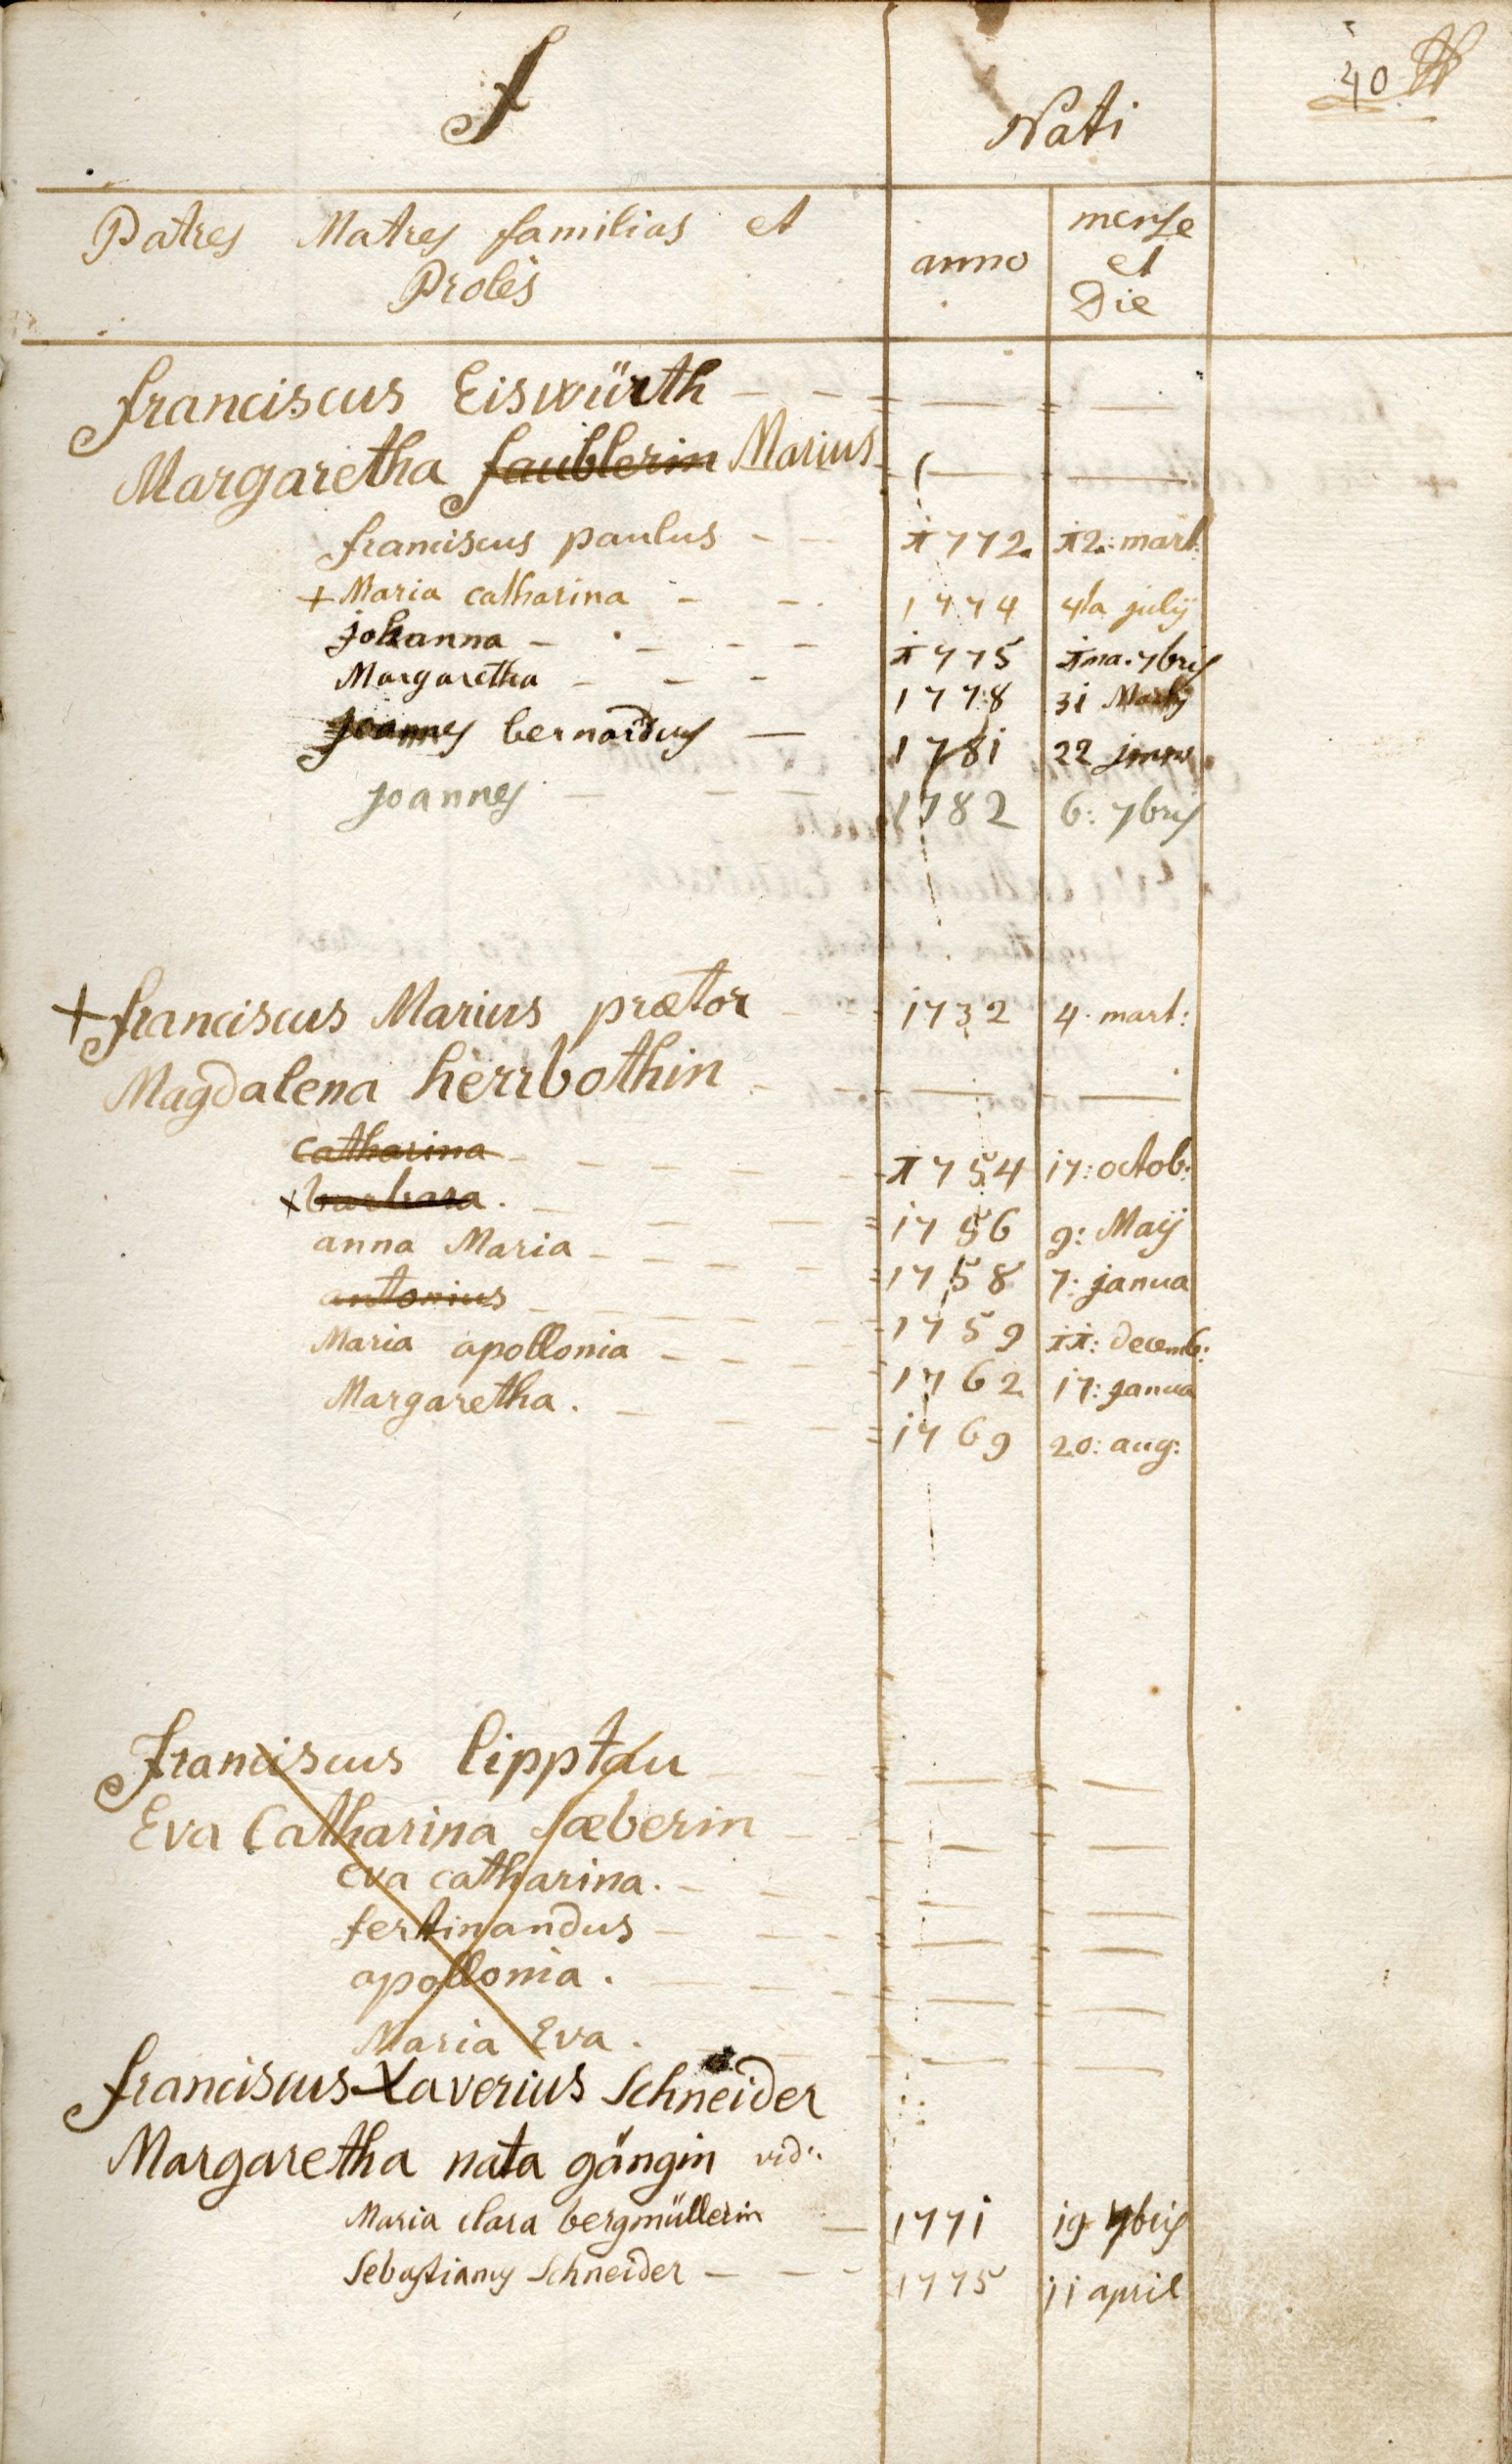 f Nati 40
Patres Matres familias et
Proles
anno
mense
et
Die
franciscus Eiswürth
Margaretha faublerin Marius
franciscus paulus 1772. 12. mart:
+ Maria catharina 1774 4ta july
johanna 1775 1ma. 7bris
Margaretha 1778 31 Martij
joannes bernardus 1781 22
joannes 1782 6: 7bris
+ franciscus Marius prætor 1732 4. mart:
Magdalena herrbothin
catharina 1754 17: octob:
x barbara. 1756 9: Maij
anna Maria 1758 7: janua
antonius 1759 11: decemb:
Maria apollonia 1762 17: janua
Margaretha. 1769 20: aug:
franciscus lipptau
Eva Catharina fæberin
eva catharina.
fertinandus
apollonia.
Maria Eva.
franciscus Xaverius Schneider
Margaretha nata gängin vid:
Maria clara bergmüllerin 1771 19 7bris
Sebastianus Schneider 1775 11 april